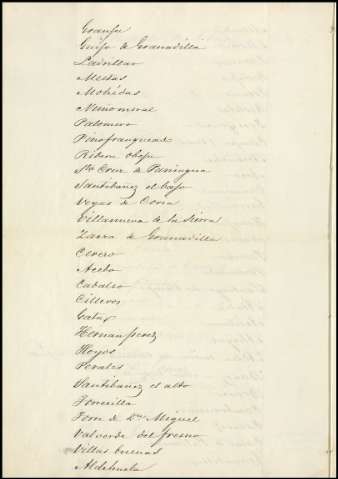 Granja
Guijo de Granadilla
Ladrillar
Mestas
Mohedas
Nuñomoral
Palomero
Pinofranqueado
Rivera obeja
Sta Cruz de Paniagua
Santibañez el bajo
Vegas de Coria
Villanueva de la Sierra
Zarza de Granadilla
Cerezo
Acebo
Cadalso
Cilleros
Gata
Hernanperez
Hoyos
Perales
Santibañez el alto
Torrecilla
Torre de Dn Miguel
Valverde del fresno
Villas buenas
Aldehuela